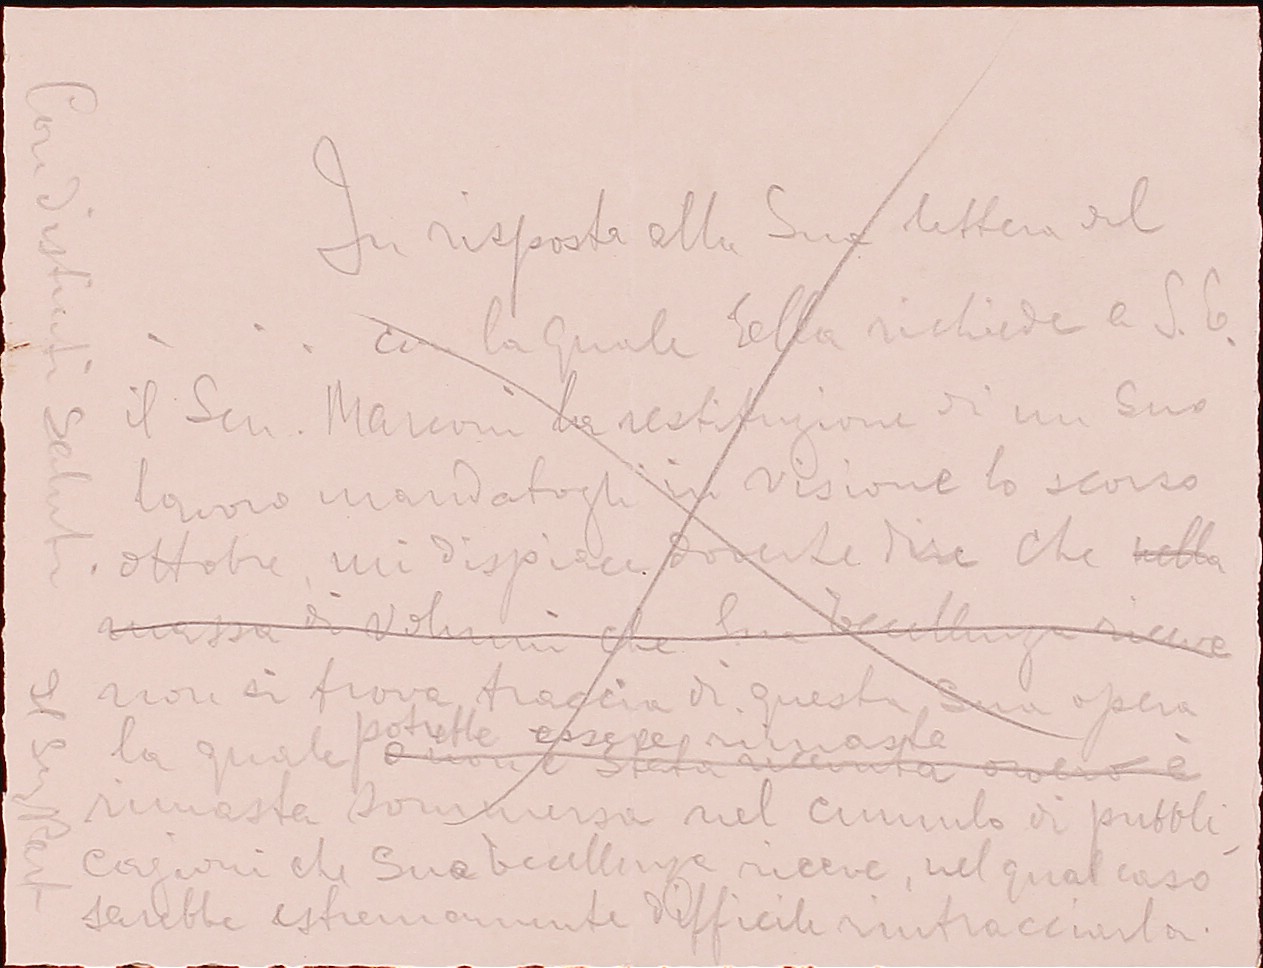 In risposta alla Sua lettera del
. . . con la quale Ella richiede a S.E.
il Sen. Marconi la restituzione di un Suo
lavoro mandatogli in visione lo scorso
ottobre, mi dispiace doverLe dire che nella
massa di volumi che Sua Eccellenza riceve
non si trova traccia di questa Sua opera
potrebbe essere rimasta
la quale o non è stata ricevuta ovvero è
rimasta sommersa nel cumulo di pubbli-
cazioni che Sua Eccellenza riceve, nel qual caso
sarebbe estremamente difficile rintracciarla.
Con distinti saluti
Il Seg. Part.